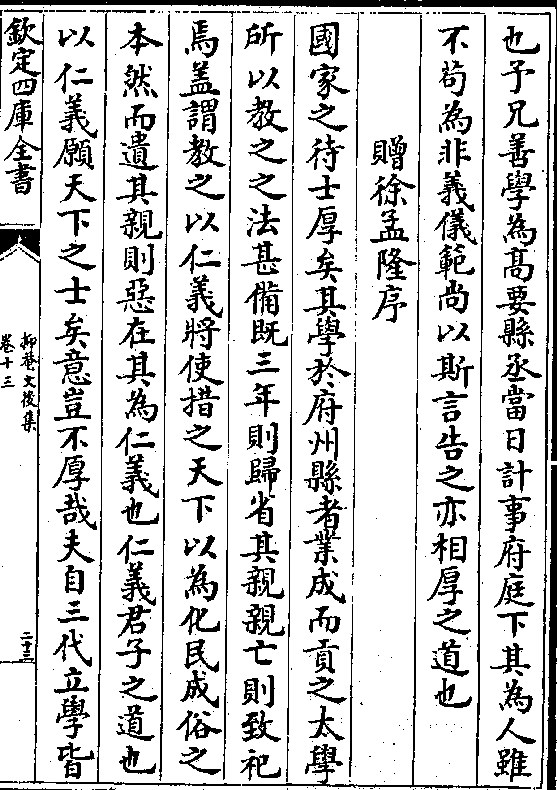 也予兄善學為髙要縣丞當日計事府庭下其為人雖
不茍為非義儀範尚以斯言告之亦相厚之道也
贈徐孟隆序
國家之待士厚矣其學於府州縣者業成而貢之太學
所以教之之法甚備既三年則歸省其親親亡則致祀
焉盖謂教之以仁義將使措之天下以為化民成俗之
本然而遺其親則惡在其為仁義也仁義君子之道也
以仁義願天下之士矣意豈不厚哉夫自三代立學皆
欽定四庫全書
抑菴文後集
卷十三
二十三